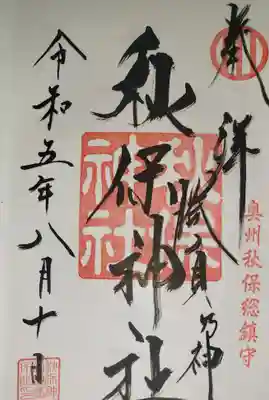 奉拝
奥州秋保総鎮守
勝負乃神
秋保神社
秋保
神社
令和五年八月十日